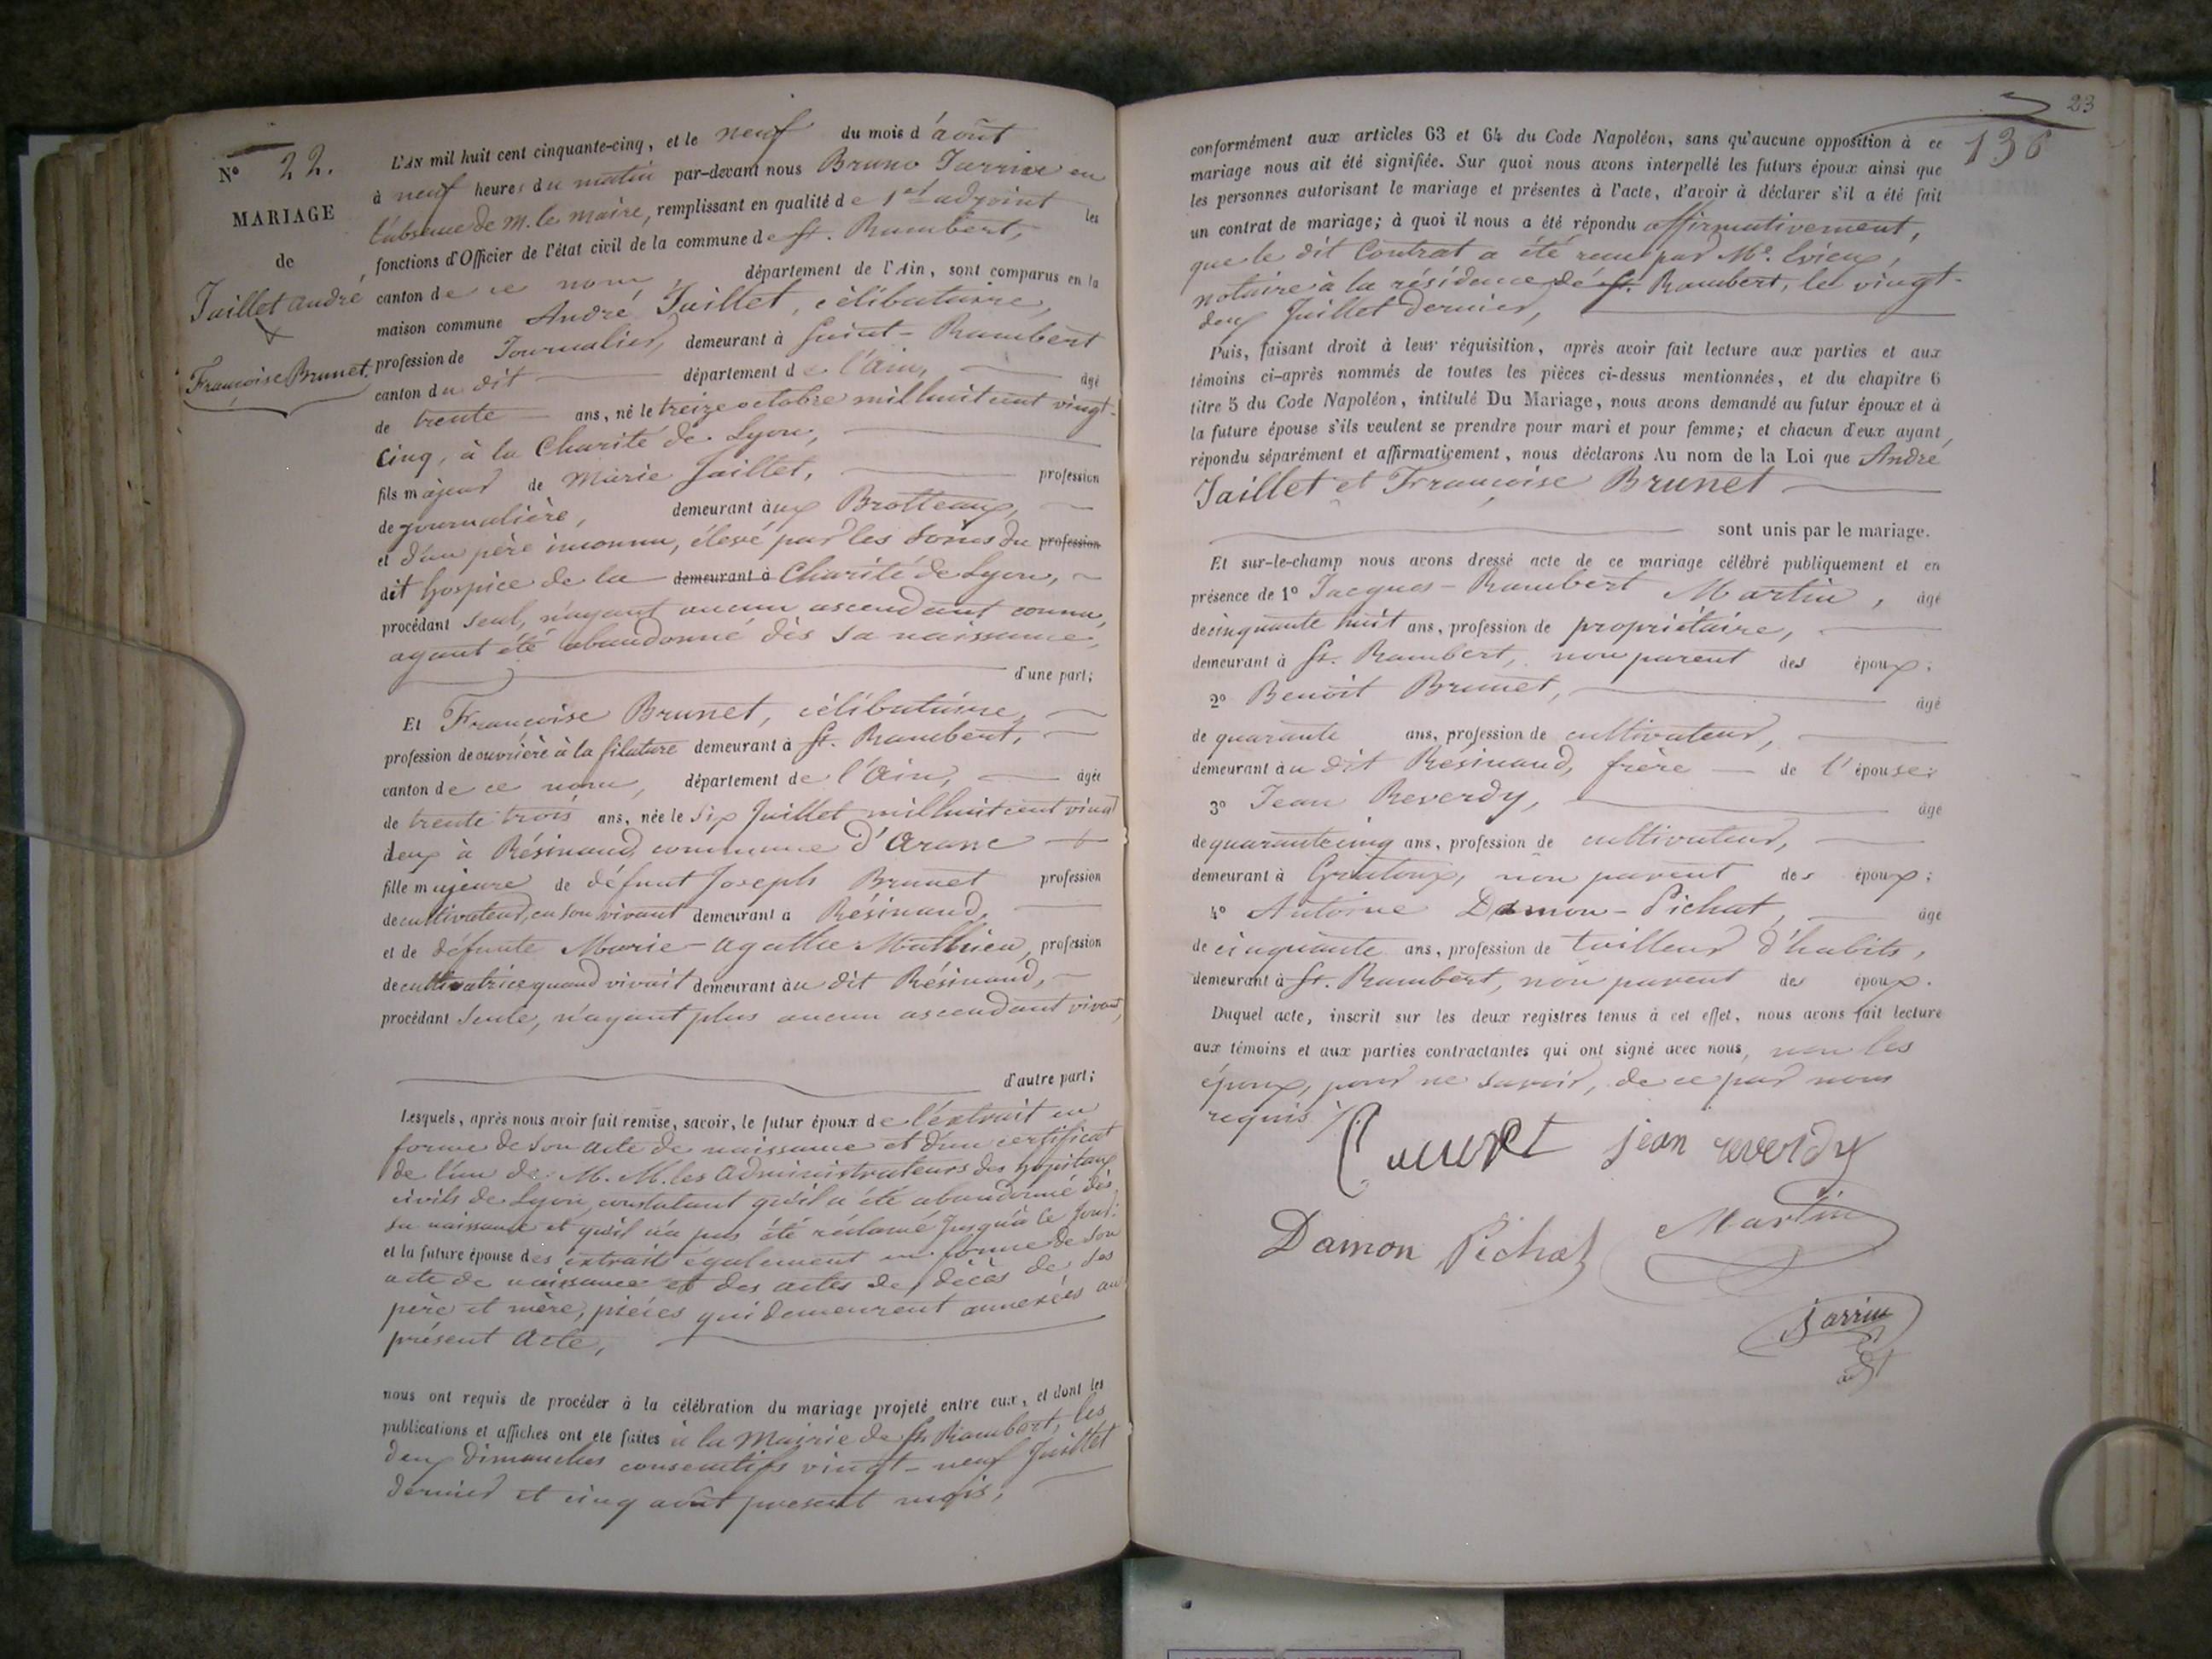 N° 22.
MARIAGE
de
Jaillet André
&
Françoise Brunet.
L'AN mil huit cent cinquante-cinq, et le neuf du mois d'août
à neuf heures du matin par-devant nous Bruno Jarrin en
l'absence de M. le Maire, remplissant en qualité de 1er adjoint les
fonctions d'Officier de l'état civil de la commune de St. Rambert,
canton de ce nom, département de l'Ain, sont comparus en la
maison commune André Jaillet, célibataire,
profession de Journalier, demeurant à Saint-Rambert
canton du dit département de l'Ain, âgé
de trente ans, né le treize octobre mil huit cent vingt-
cinq, à la Charité de Lyon,
fils majeur de Marie Jaillet, profession
de journalière, demeurant aux Brotteaux,
et d'un père inconnu, élevé par les soins du profession
dit hospice de la demeurant à Charité de Lyon,
procédant seul, n'ayant aucun ascendant connu,
ayant été abandonné dès sa naissance,
d'une part;
Et Françoise Brunet, célibataire,
profession de ouvrière à la filature demeurant à St. Rambert,
canton de ce nom, département de l'Ain, âgée
de trente trois ans, née le six Juillet mil huit cent vingt
deux à Résinand, commune d'Aranc
fille majeure de défunt Joseph Brunet profession
de cultivateur, en son vivant demeurant à Résinand,
et de défunte Marie-Agathe Mathieu, profession
de cultivatrice quand vivait demeurant au dit Résinand,
procédant seule, n'ayant plus aucun ascendant vivant,
d'autre part;
Lesquels, après nous avoir fait remise, savoir, le futur époux de l'extrait en
forme de son acte de naissance et d'un certificat
de l'un de M. M. les Administrateurs des hôpitaux
civils de Lyon, constatant qu'il a été abandonné dès
sa naissance et qu'il n'a pas été réclamé jusqu'à ce jour:
et la future épouse des extraits également en forme de son
acte de naissance et des actes de décès de ses
père et mère, pièces qui demeurent annexées au
présent acte,
nous ont requis de procéder à la célébration du mariage projeté entre eux, et dont les
publications et affiches ont été faites à la Mairie de St. Rambert, les
deux dimanches consécutifs vingt-neuf Juillet
dernier et cinq août présent mois,
23
136
conformément aux articles 63 et 64 du Code Napoléon, sans qu'aucune opposition à ce
mariage nous ait été signifiée. Sur quoi nous avons interpellé les futurs époux ainsi que
les personnes autorisant le mariage et présentes à l'acte, d'avoir à déclarer s'il a été fait
un contrat de mariage; à quoi il nous a été répondu affirmativement,
que le dit Contrat a été reçu par Me.
notaire à la résidence de St. Rambert, le vingt-
deux Juillet dernier,
Puis, faisant droit à leur réquisition, après avoir fait lecture aux parties et aux
témoins ci-après nommés de toutes les pièces ci-dessus mentionnées, et du chapitre 6
titre 5 du Code Napoléon, intitulé Du Mariage, nous avons demandé au futur époux et à
la future épouse s'ils veulent se prendre pour mari et pour femme; et chacun d'eux ayant
répondu séparément et affirmativement, nous déclarons Au nom de la Loi que André
Jaillet et Françoise Brunet
sont unis par le mariage.
Et sur-le-champ nous avons dressé acte de ce mariage célébré publiquement et en
présence de 1° Jacques-Rambert Martin, âgé
de cinquante huit ans, profession de propriétaire,
demeurant à St. Rambert, non parent des époux;
2° Benoît Brunet, âgé
de quarante ans, profession de cultivateur,
demeurant au dit Résinand, frère de l'épouse;
3° Jean Reverdy, âgé
de quarante cinq ans, profession de cultivateur,
demeurant à Gratoux, non parent des époux;
4° Antoine Damon-Pichat, âgé
de cinquante ans, profession de tailleur d'habits,
demeurant à St. Rambert, non parent des époux.
Duquel acte, inscrit sur les deux registres tenus à cet effet, nous avons fait lecture
aux témoins et aux parties contractantes qui ont signé avec nous, non les
époux, pour ne savoir, de ce par nous
requis
jean reverdy
Damon Pichat
Martin
Jarrin
adjt